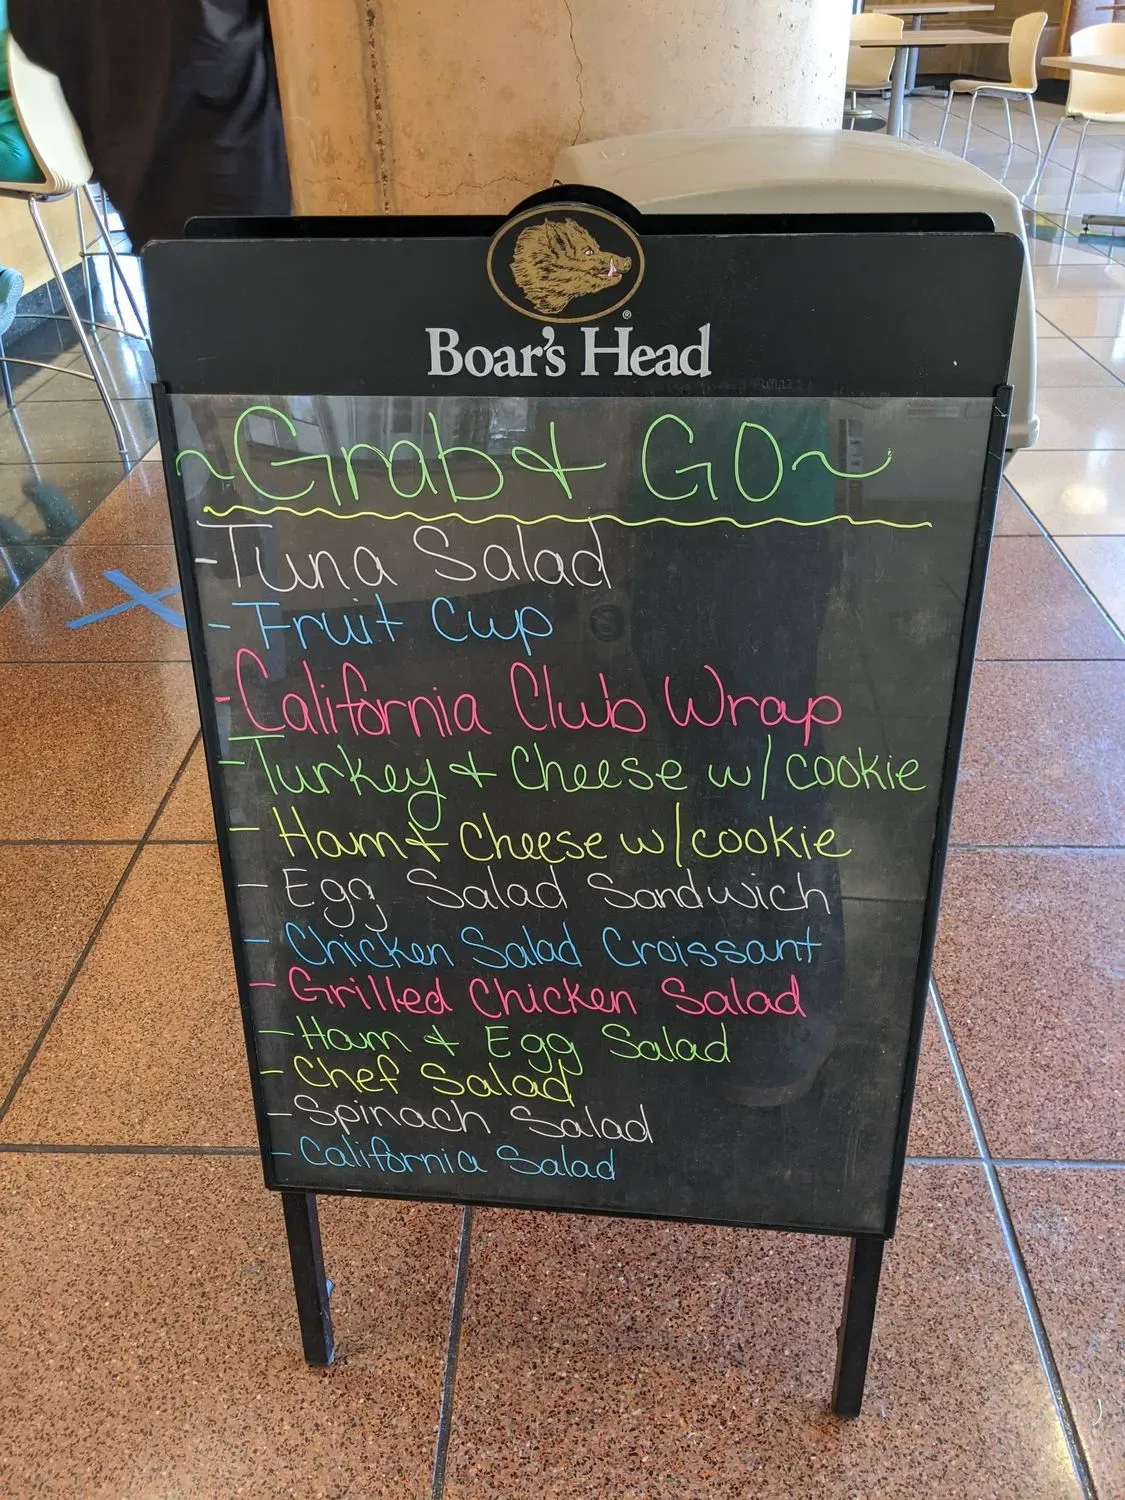 ®
Boar's Head
~Grab & GO~
-Tuna Salad
- Fruit Cup
-California Club Wrap
-Turkey & Cheese w/ cookie
- Ham & Cheese w/cookie
- Egg Salad Sandwich
- Chicken Salad Croissant
- Grilled Chicken Salad
-Ham & Egg Salad
- Chef Salad
-Spinach Salad
- California Salad